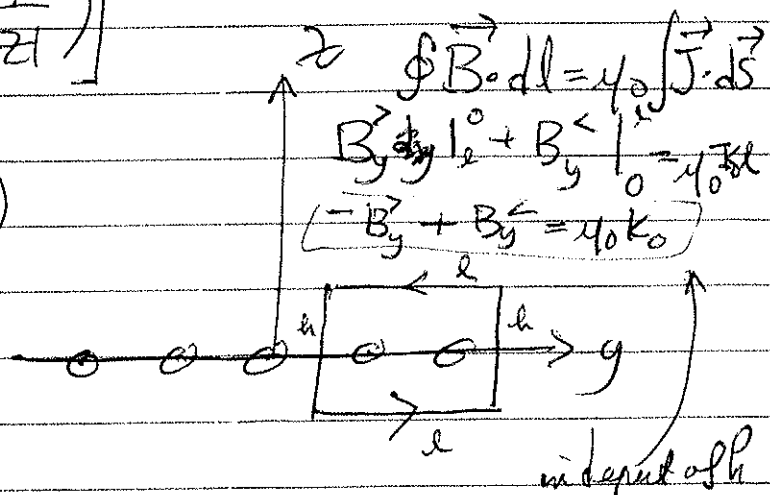 z
∮B⃗·dl = μ₀∫J⃗·dS⃗
B_y^> y|_l^0 + B_y^<|_0^l = μ₀K₀l
-B_y^> + B_y^< = μ₀K₀
l
h h
y
l
independ of h